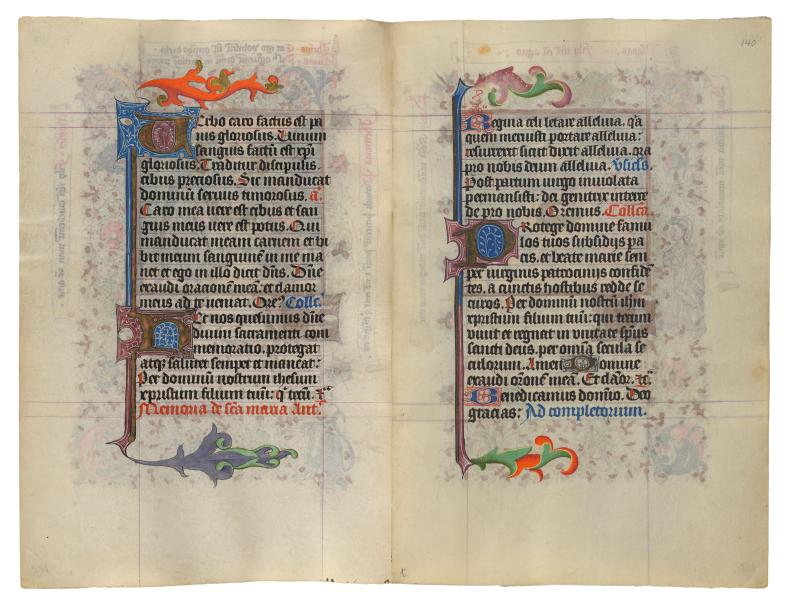 Cibo caro factus est pa
nis gloriosus. Vinum
sanguis factū est xpi
gloriosus. Traditur discipulis.
cibus preciosus. Sic manducat
dominū servus timorosus. a.
Caro mea vere est cibus et san
guis meus vere est potus. Qui
manducat meam carnem et bi
bit meum sanguinē in me ma
net et ego in illo dicit dn̄s. Dn̄e
exaudi orationē meā: et clamor
meus ad te veniat. Ore? Collc.
et nos quesumus dn̄e
divini sacramenti com
memoratio. protegat
atq salvet semper et maneat:
Per dominū nostrum ihesum
xpristum filium tuū: q tecū.
Memoria de sc̄a maria Ant.
140
Regina celi letare alleluia. q̄a
quem meruisti portare alleluia:
resurrexit sicut dixit alleluia. ora
pro nobis deum alleluia. Vsicls.
Post partum virgo inviolata
permansisti: dei genitrix interce
de pro nobis. Oremus. Collca.
Protege domine famu
los tuos subsidijs pa
cis. et beate marie sem
per virginis patrocinijs confidē
tes. a cunctis hostibus redde se
curos. Per dominū nostrū ihm
xpristum filium tuū: qui tecum
vivit et regnat in unitate sp̄us
sancti deus. per om̄ia secula se
culorum. Amen Domine
exaudi orōne meā. Et clāor.
Benedicamus domīo. Deo
gracias: Ad completorium.